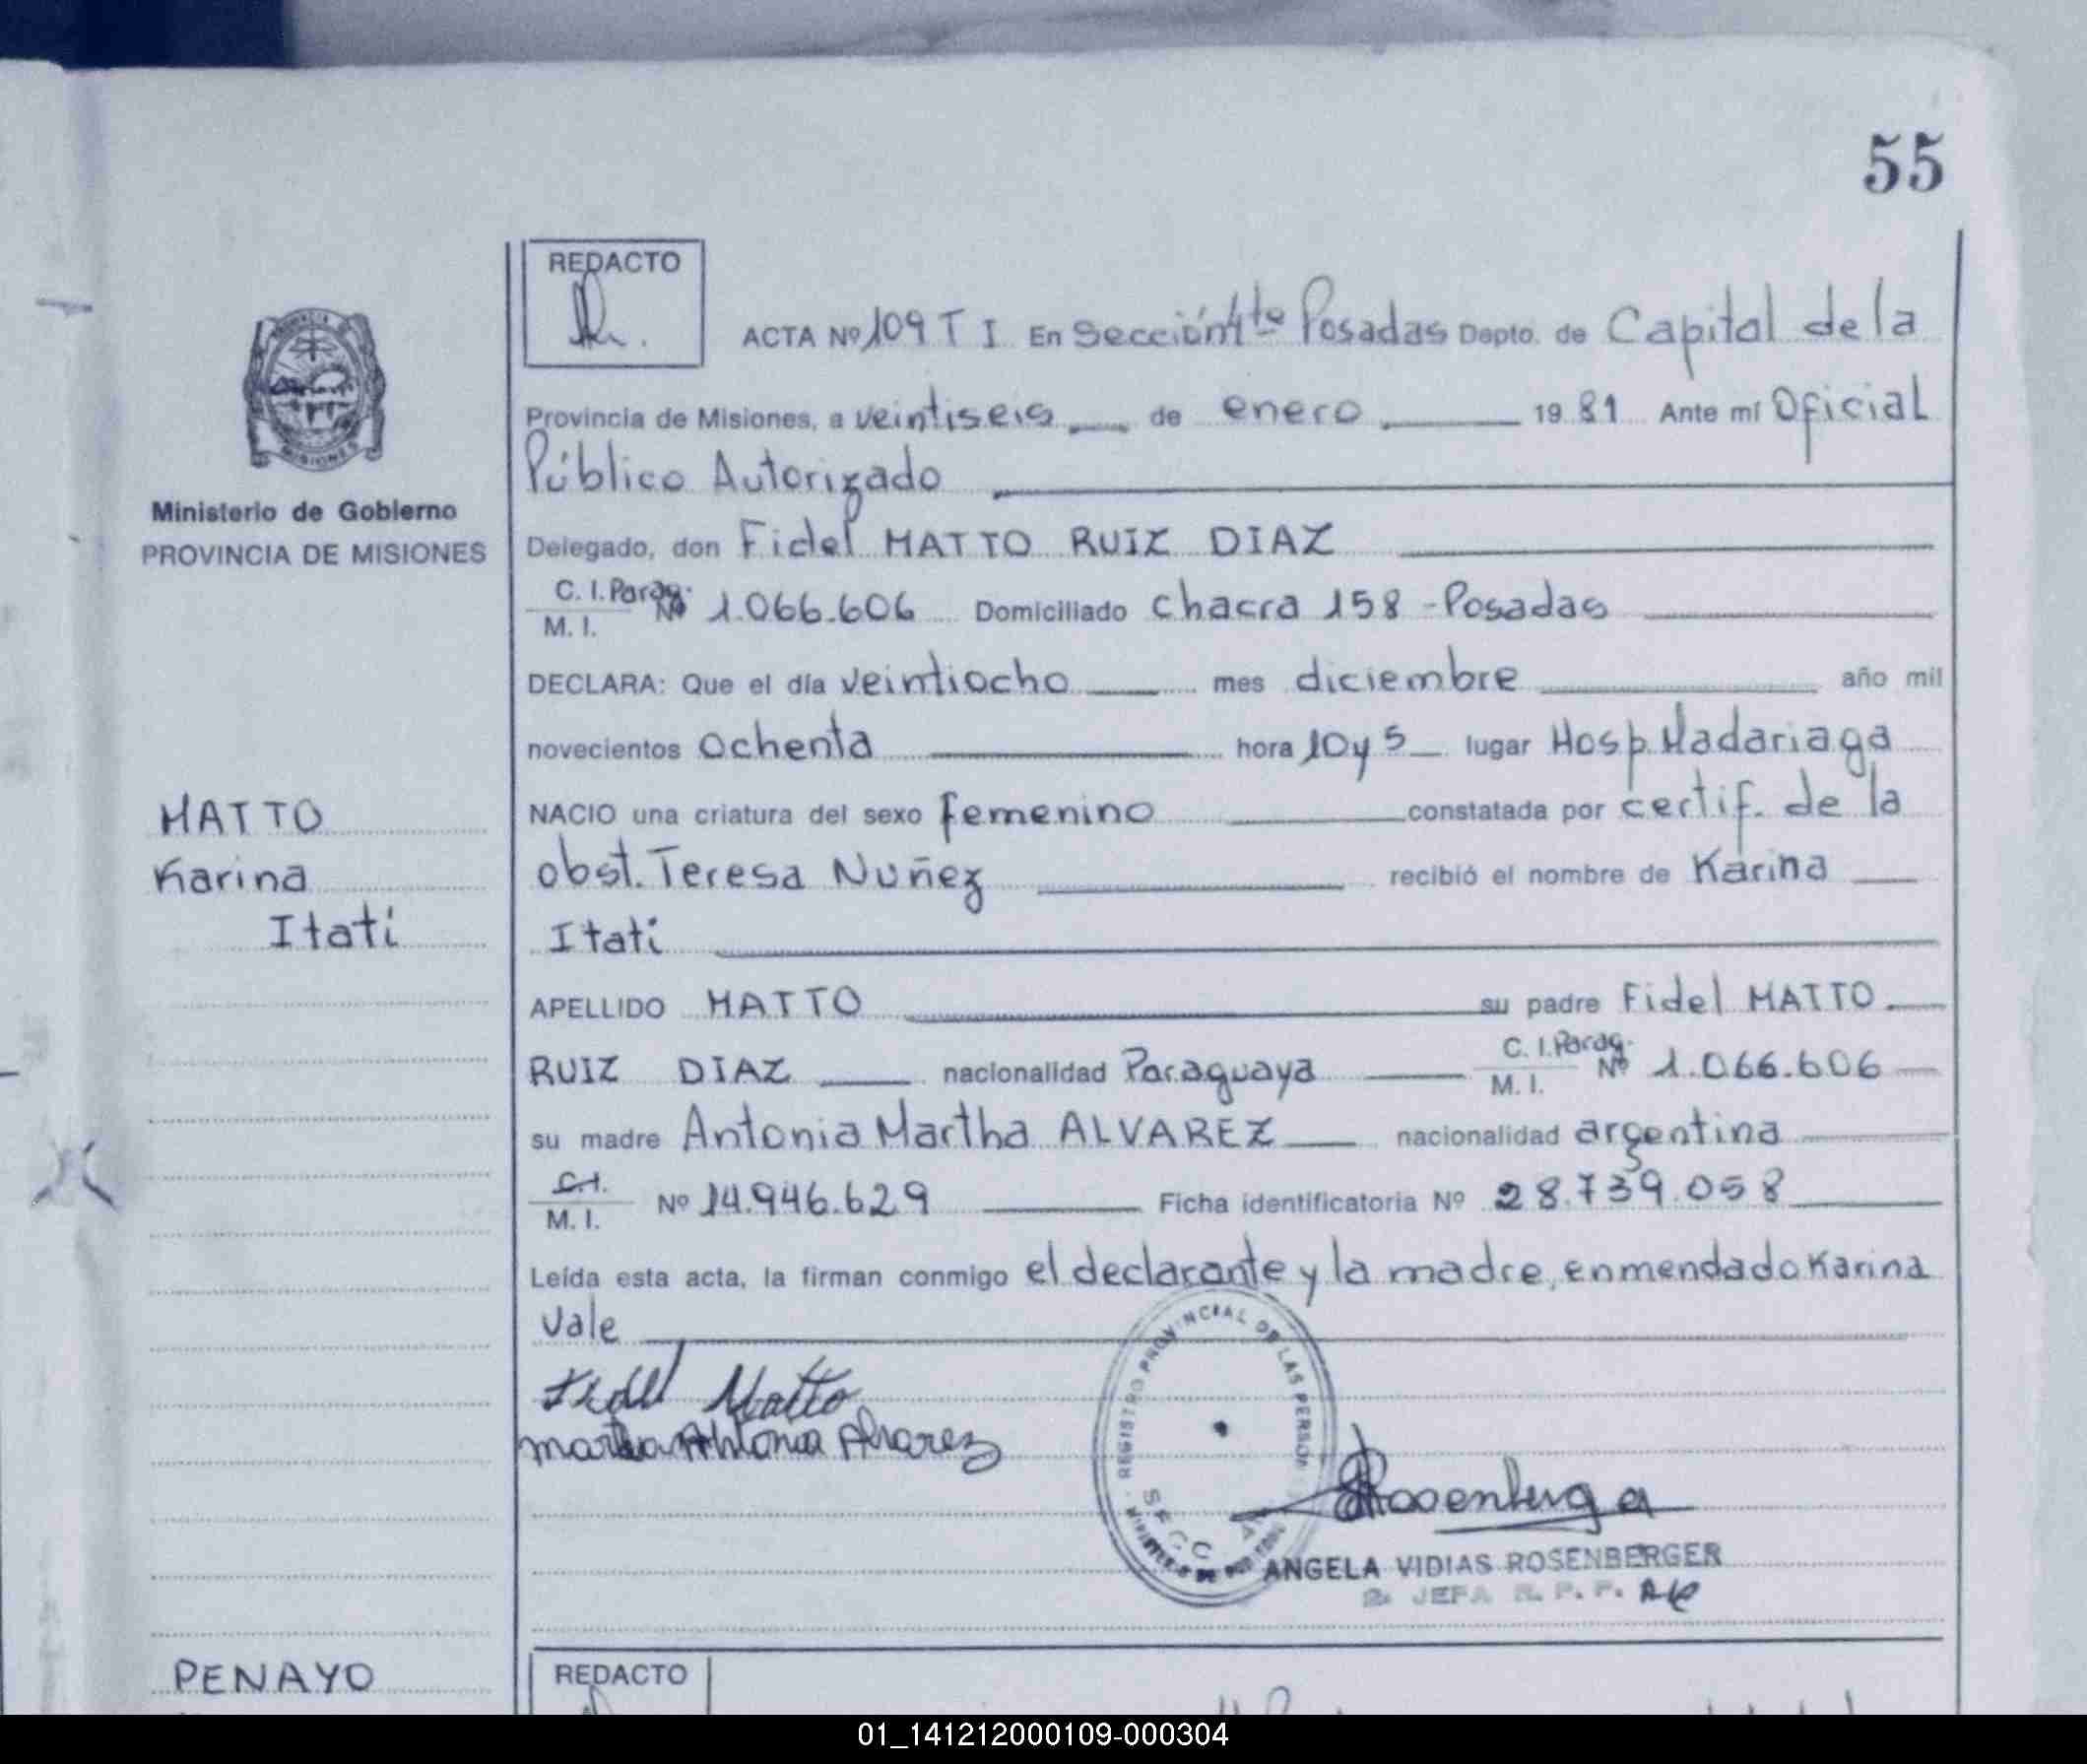 55
REDACTO
ACTA Nº 109 T I En Sección 4ta Posadas Depto. de Capital de la
Provincia de Misiones, a veintiseis de enero 1981 Ante mí Oficial
Público Autorizado
Delegado, don Fidel MATTO RUIZ DIAZ
C. I. Parag. Nº 1.066.606 Domiciliado chacra 158 - Posadas
M. I.
DECLARA: Que el día veintiocho mes diciembre año mil
novecientos ochenta hora 10 y 5 lugar Hosp. Madariaga
NACIO una criatura del sexo femenino constatada por certif. de la
obst. Teresa Nuñez recibió el nombre de Karina
Itatí
APELLIDO MATTO su padre Fidel MATTO
RUIZ DIAZ nacionalidad Paraguaya C. I. Parag. Nº 1.066.606
M. I.
su madre Antonia Martha ALVAREZ nacionalidad argentina
C. I.
M. I. Nº 14.946.629 Ficha identificatoria Nº 28.739.058
Leída esta acta, la firman conmigo el declarante y la madre, enmendado Karina
Vale
Fidel Matto
Martha Antonia Alvarez
REGISTRO PROVINCIAL DE LAS PERSON
SECC
ANGELA VIDIAS ROSENBERGER
2ª JEFA R. P. P.
PROVINCIA DE
MISIONES
Ministerio de Gobierno
PROVINCIA DE MISIONES
MATTO
Karina
Itatí
PENAYO
REDACTO
01_141212000109-000304